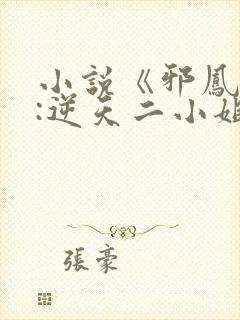 小説《邪鳳
:逆天二小姐
張豪